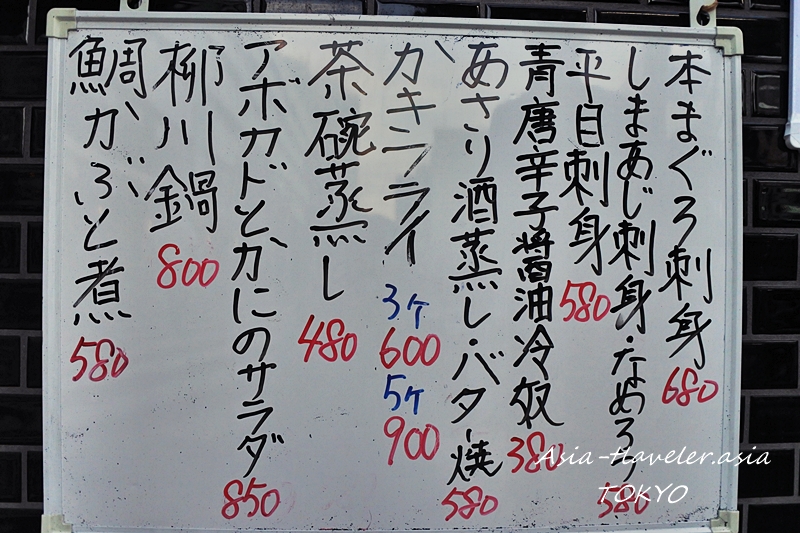 本まぐろ刺身 680
しまあじ刺身・なめろう 580
平目刺身 580
青唐辛子醤油冷奴 380
あさり酒蒸し・バター焼 580
カキフライ 3ケ 600 5ケ 900
茶碗蒸し 480
アボカドとかにのサラダ 850
柳川鍋 800
鯛かぶと煮 580
Asia-traveler.asia
TOKYO